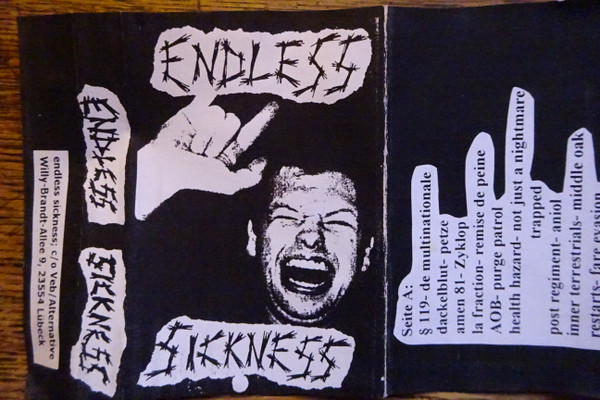 ENDLESS
SICKNESS
ENDLESS
SICKNESS
endless sickness; c/o Veb/Alternative
Willy-Brandt-Allee 9, 23554 Lübeck
Seite A:
§ 119- de multinationale
dackelblut- petze
amen 81- Zyklop
la fraction- remise de peine
AOB- purge patrol
health hazard- not just a nightmare
trapped
post regiment- aniol
inner terrestrials- middle oak
restarts- fare evasion